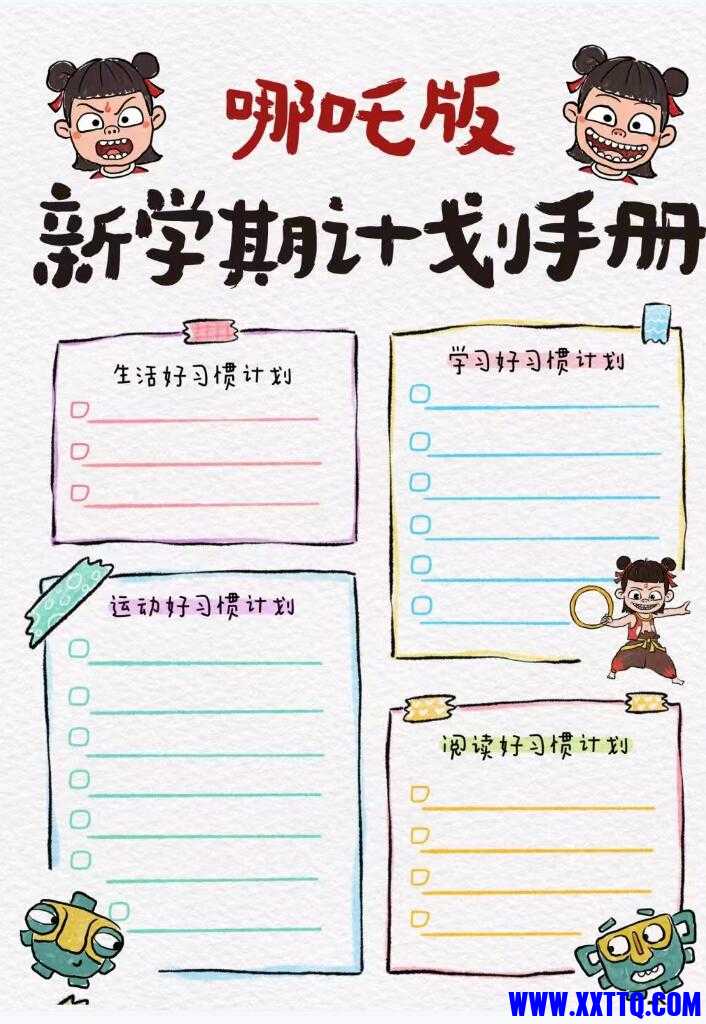 哪吒版
新学期计划手册
生活好习惯计划
学习好习惯计划
运动好习惯计划
阅读好习惯计划
WWW.XXTTQ.COM